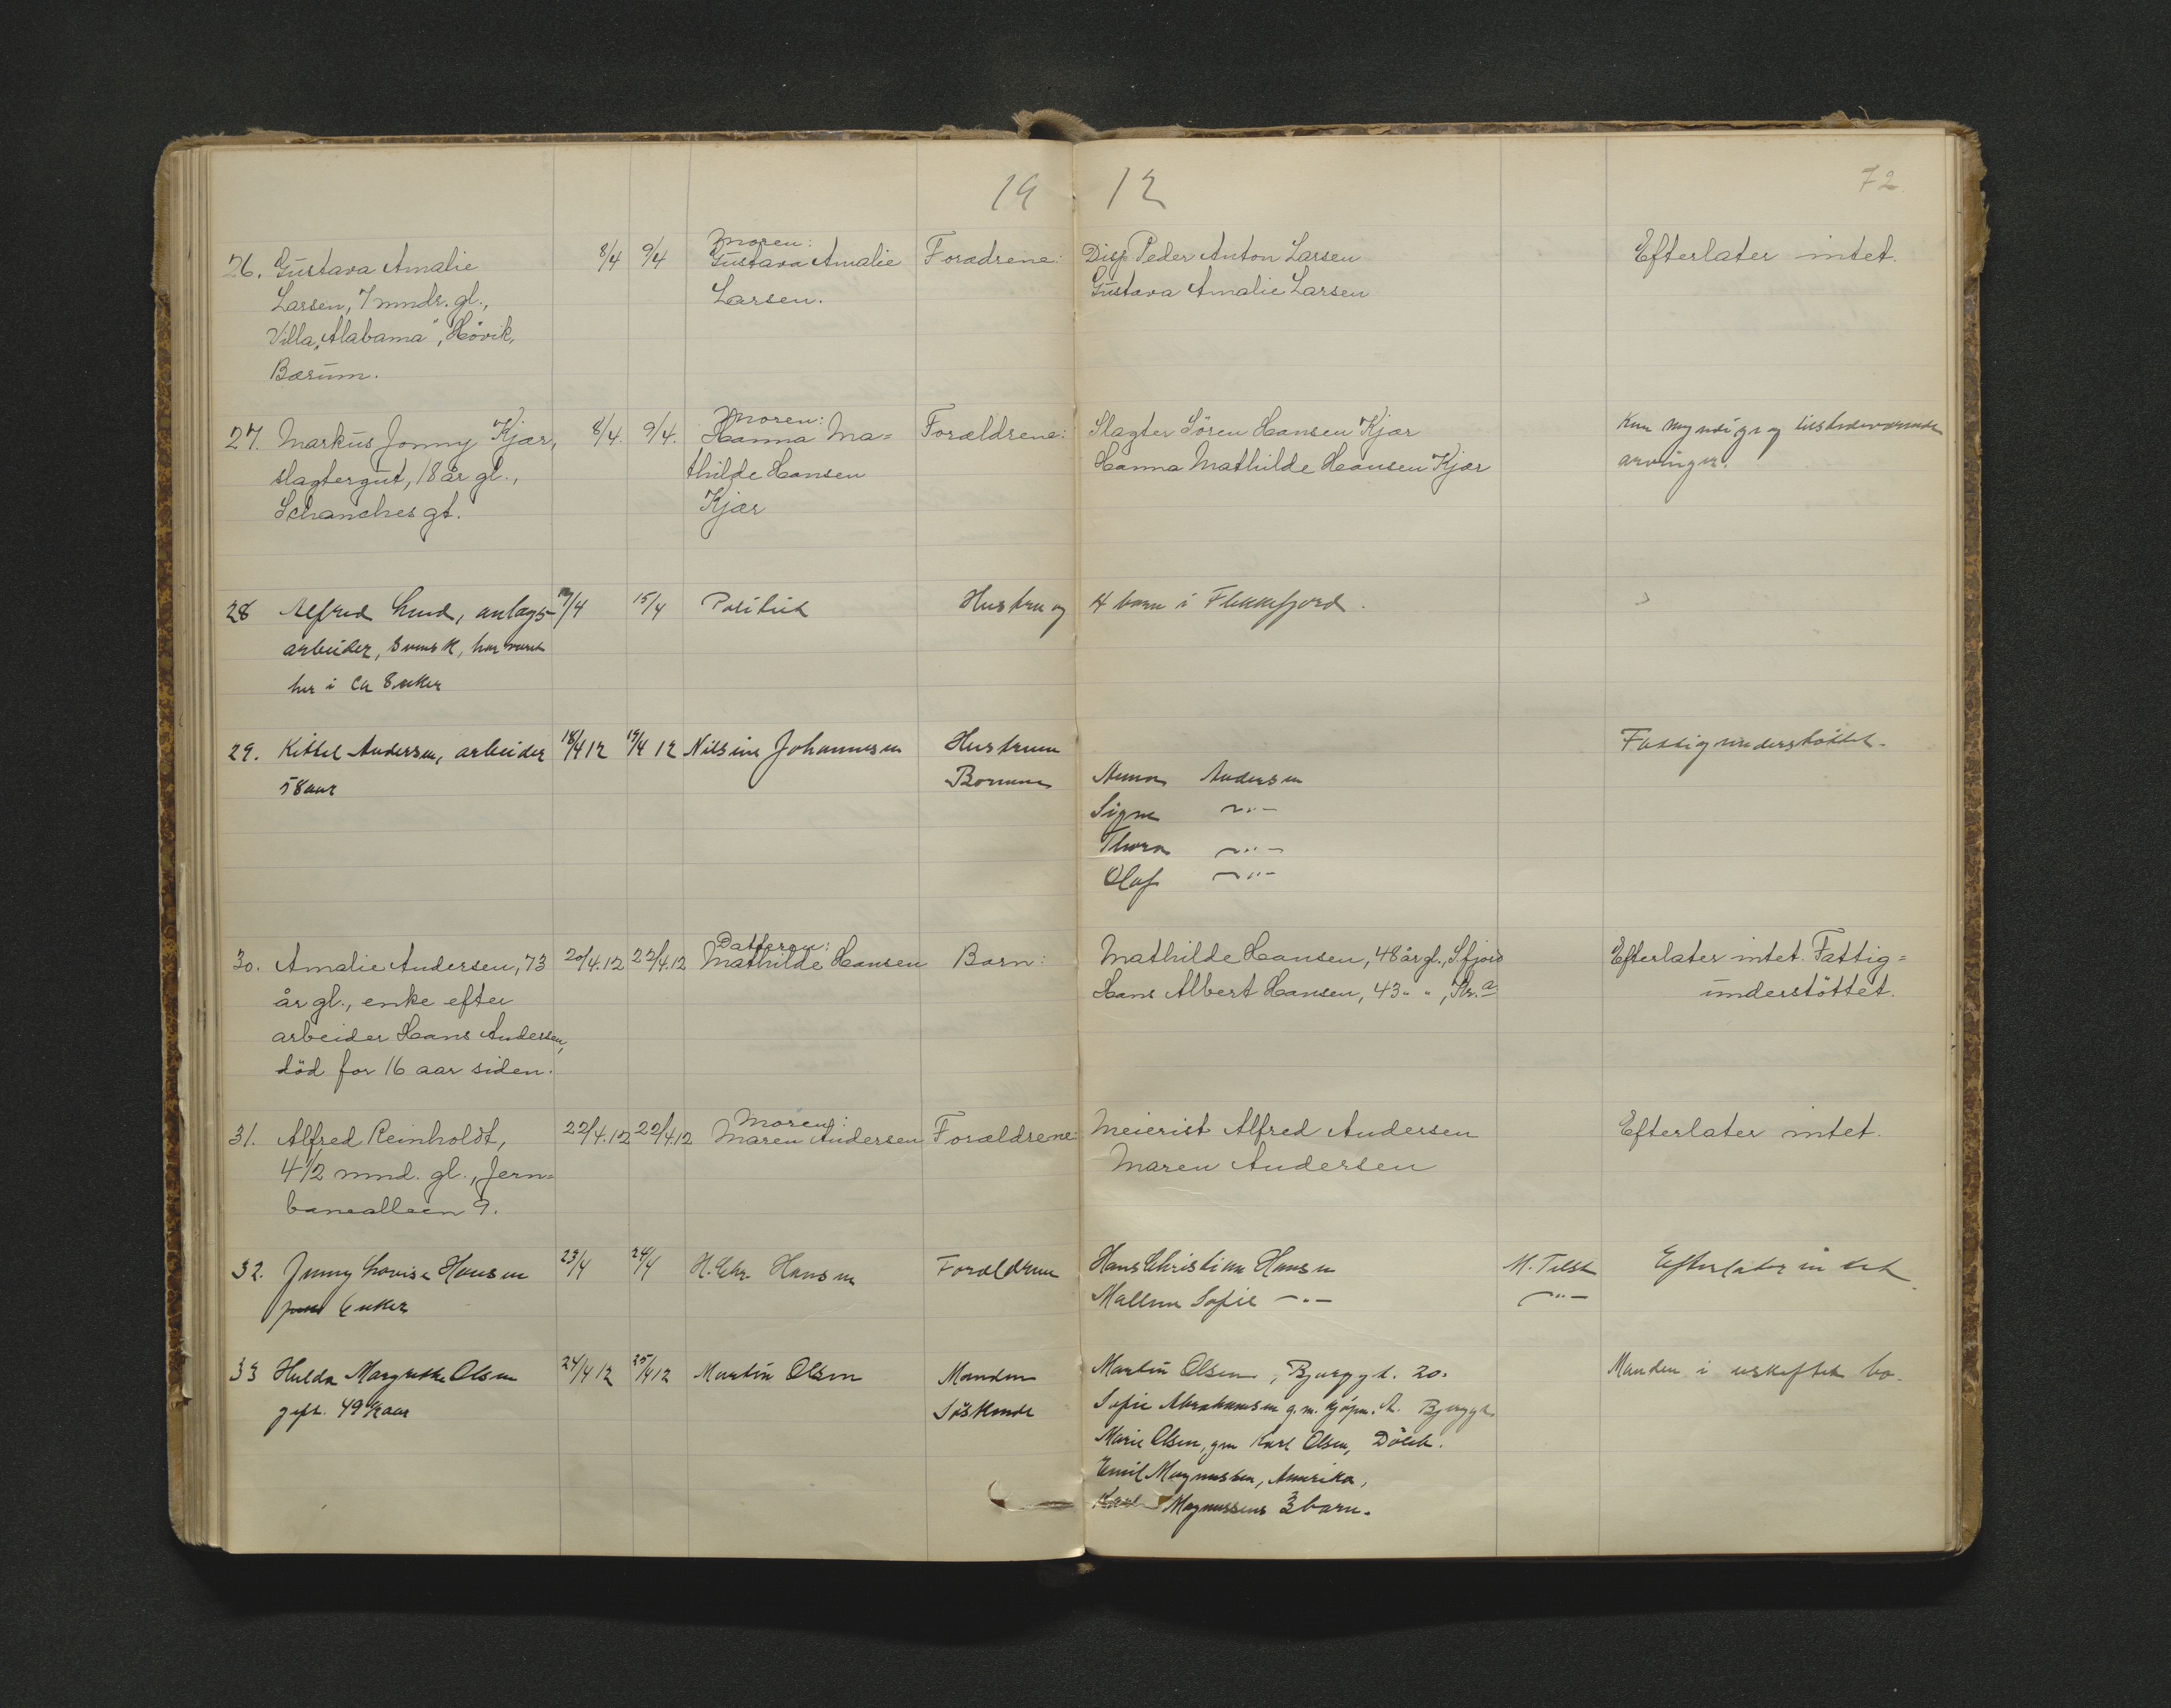 19 12
72
26. Gustava Amalie 8/4 9/4 Moren: Gustava Amalie Foradrene: Disp Peder Anton Larsen Efterlater intet.
Larsen, 7 mndr. gl., Larsen. Gustava Amalie Larsen
Villa "Alabama", Hövik,
Bærum.
27. Markus Jonny Kjær, 8/4. 9/4. Moren: Hanna Ma= Forældrene: Slagter Sören Hansen Kjær Kun myndige og tilstedeværende
slagtergut, 18 år gl., thilde Hansen Hanna Mathilde Hansen Kjær arvinger.
Schanches gt. Kjær
28 Alfred Lund, anlægs- /4 15/4 Politiet Hustru og 4 barn i Flekkefjord.
arbeider, svensk, har været
her i ca 8 uker
29. Kittel Andersen, arbeider 18/4 12 19/4 12 Nilsine Johannesen Hustruen Fattigunderstöttet.
58 aar Barnene Anna Andersen
Signe -"-
Thora -"-
Olaf -"-
30. Amalie Andersen, 73 20/4.12 22/4.12 Datteren: Mathilde Hansen Barn: Mathilde Hansen, 48 år gl., S.fjord Efterlater intet. Fattig=
år gl., enke efter Hans Albert Hansen, 43 " ", Kr.a understöttet.
arbeider Hans Andersen,
död for 16 aar siden.
31. Alfred Reinholdt, 22/4.12 22/4.12 Moren: Maren Andersen Forældrene: Meierist Alfred Andersen Efterlater intet.
4 1/2 mnd. gl., Jern= Maren Andersen
banealleen 9.
32. Jenny Lovise Hansen 23/4 24/4 H. Chr. Hansen Forældrene Hans Christian Hansen M. Telst Efterlater intet
6 uker Mallene Sofie -"- -"-
33 Hulda Margrethe Olsen 24/4 12 25/4 12 Martin Olsen Manden Martin Olsen, Bjerggt. 20. Manden i uskiftet bo.
gift. 49 1/2 aar Söskende Sofie Abrahamsen g. m. kjöpm. A. Bjerggt.
Marie Olsen, gm Karl Olsen, Döleb.
Emil Magnussen, Amerika,
Karl Magnussens 3 barn.